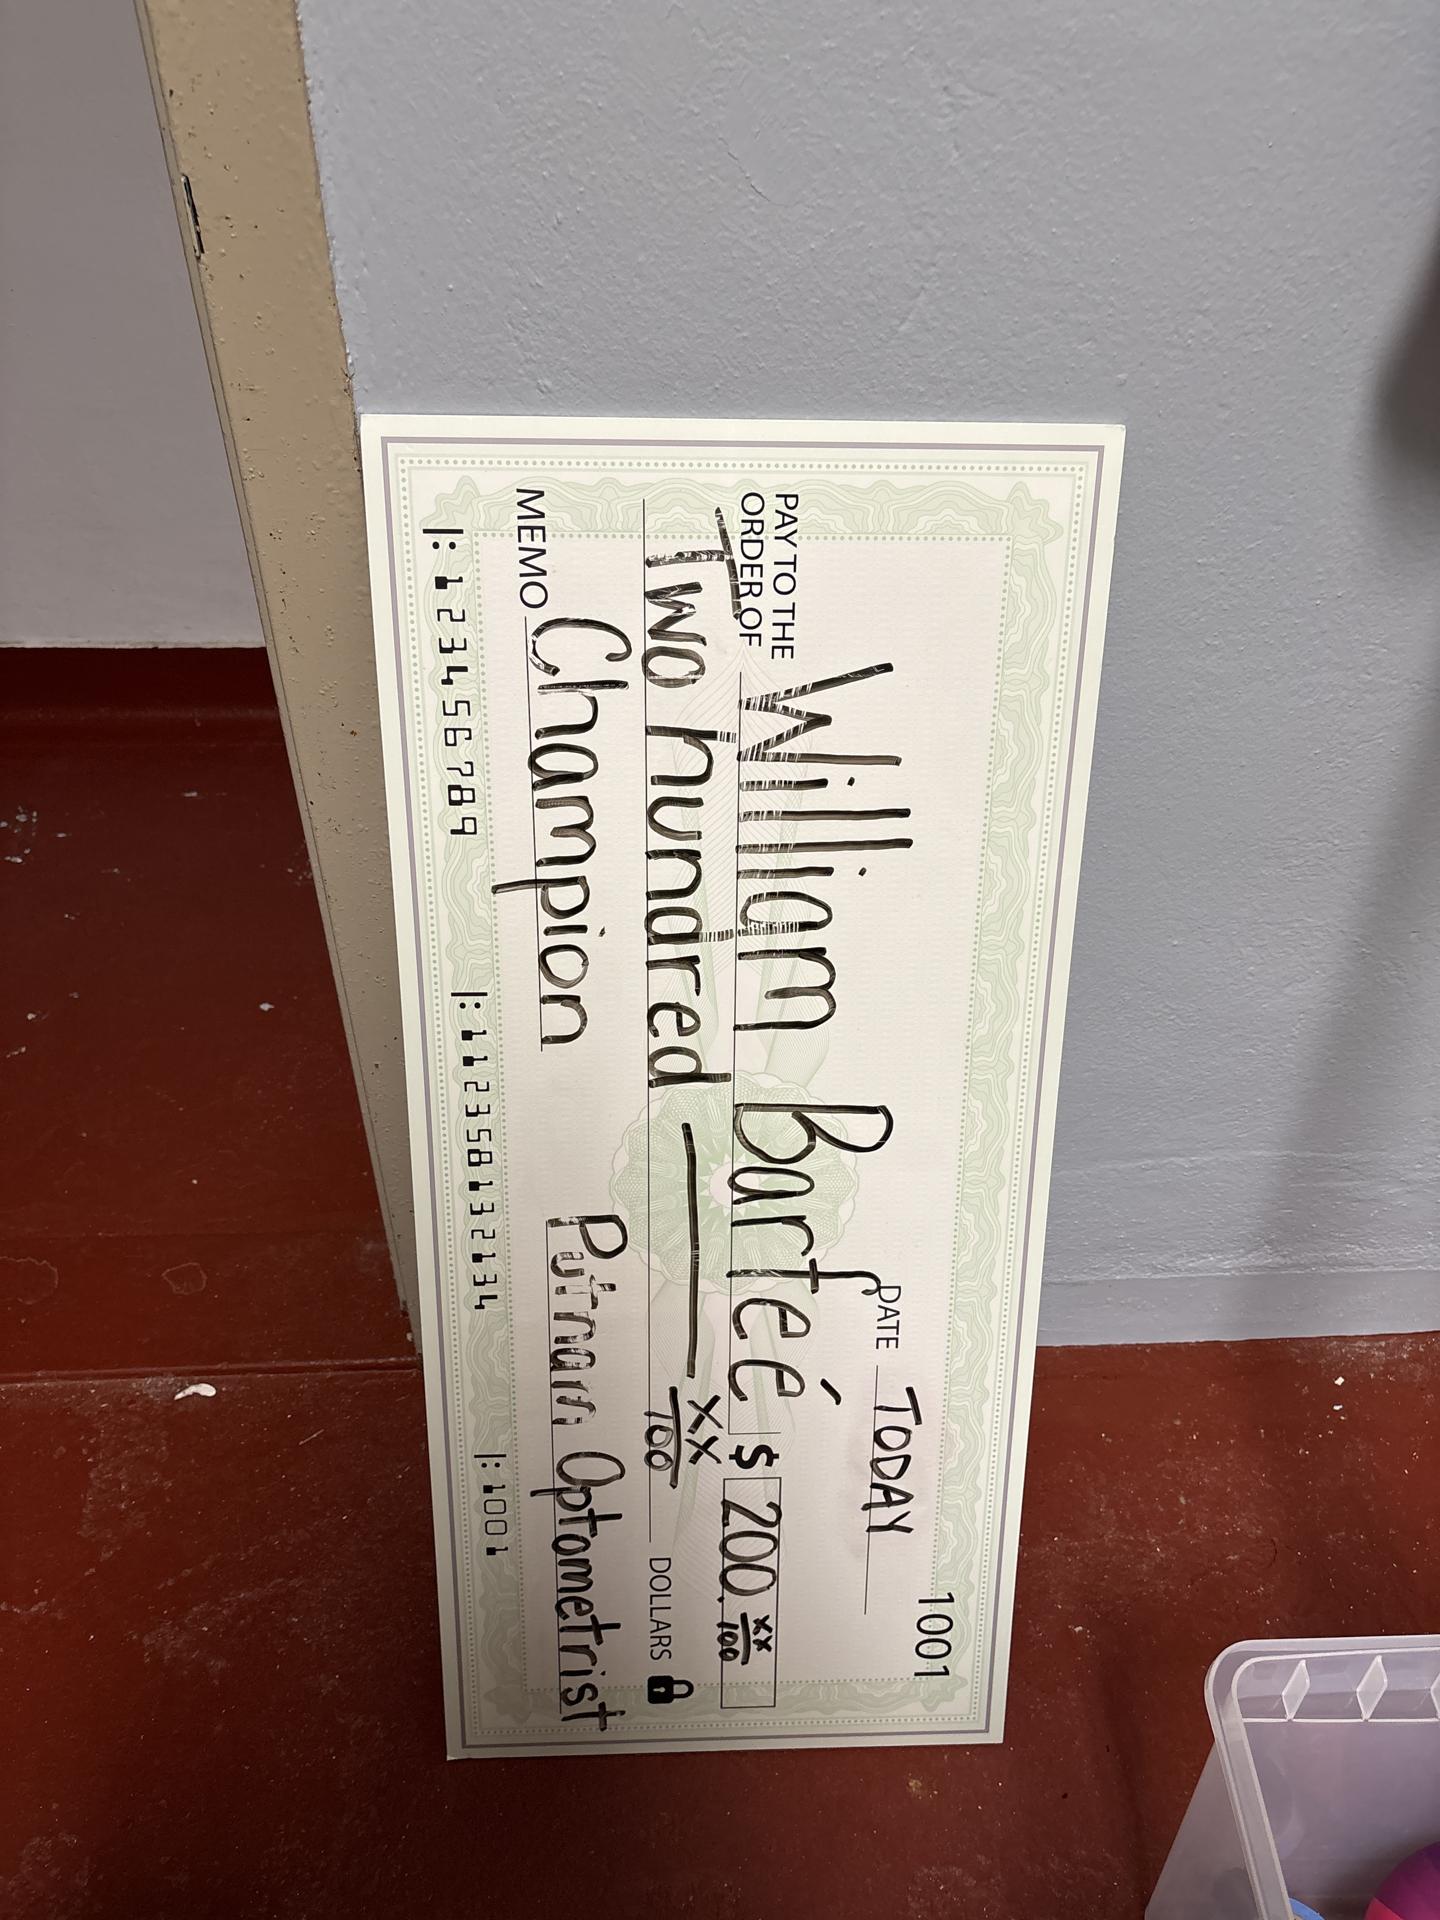 1001
DATE TODAY
PAY TO THE
ORDER OF William Barfeé $ 200. xx/100
Two hundred — xx/100 DOLLARS
MEMO Champion Putnam Optometrist
|: 123456789 |: 112358132134 |: 1001